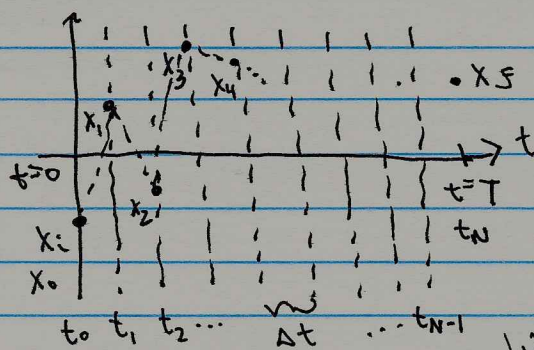 x₃
x₄
x_f
x₁
t
t=0
x₂
t=T
t_N
x_i
x₀
t₀ t₁ t₂ ... Δt ... t_{N-1}